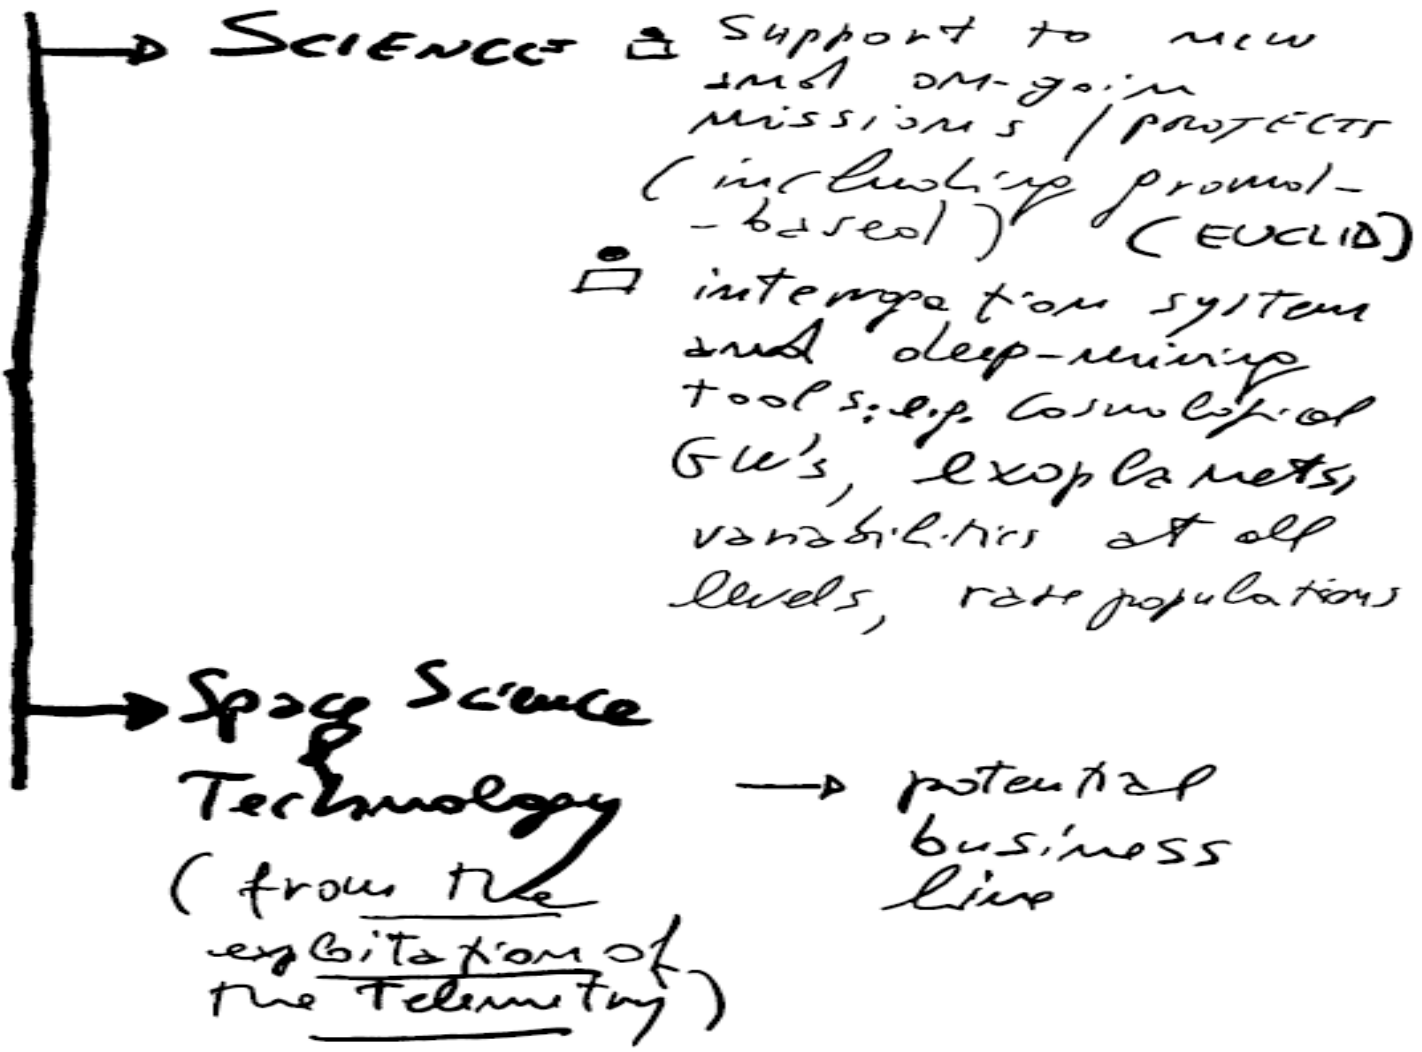 SCIENCE
Support to new
and on-goin
missions / PROJECTS
(including ground-
-based) (EUCLID)
interrogation system
and deep-mining
tools; e.g. Cosmological
GW's, exoplanets,
variabilities at all
levels, rare populations
Space Science
Technology → potential
business
line
(from the
exploitation of
the Telemetry)